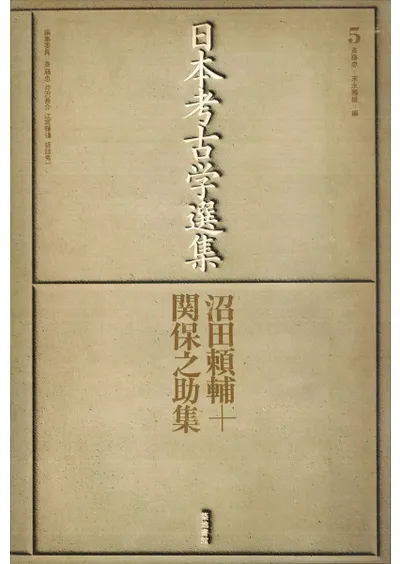 5 斎藤忠 末永雅雄 編
日本考古学選集
編集委員 斎藤忠 芹沢長介 江坂輝彌 坂詰秀一
沼田頼輔+
関保之助集
築地書館